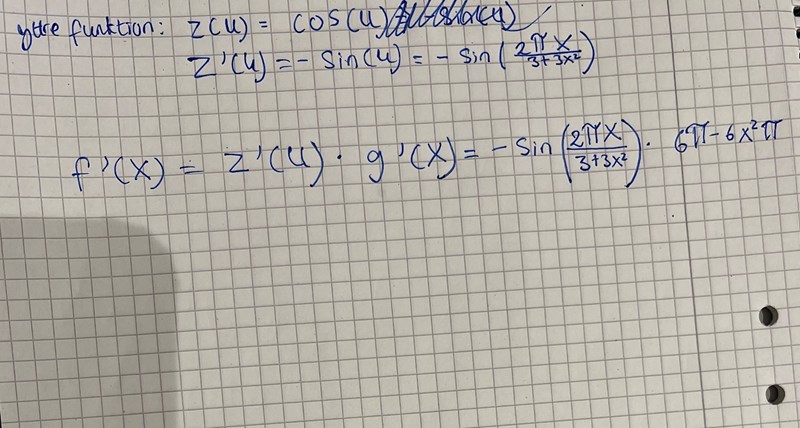 yttre funktion: z(u) = cos(u)
z'(u) = - sin(u) = - sin(2πx / 3+3x²)
f'(x) = z'(u) · g'(x) = - sin(2πx / 3+3x²) · 6π - 6x²π